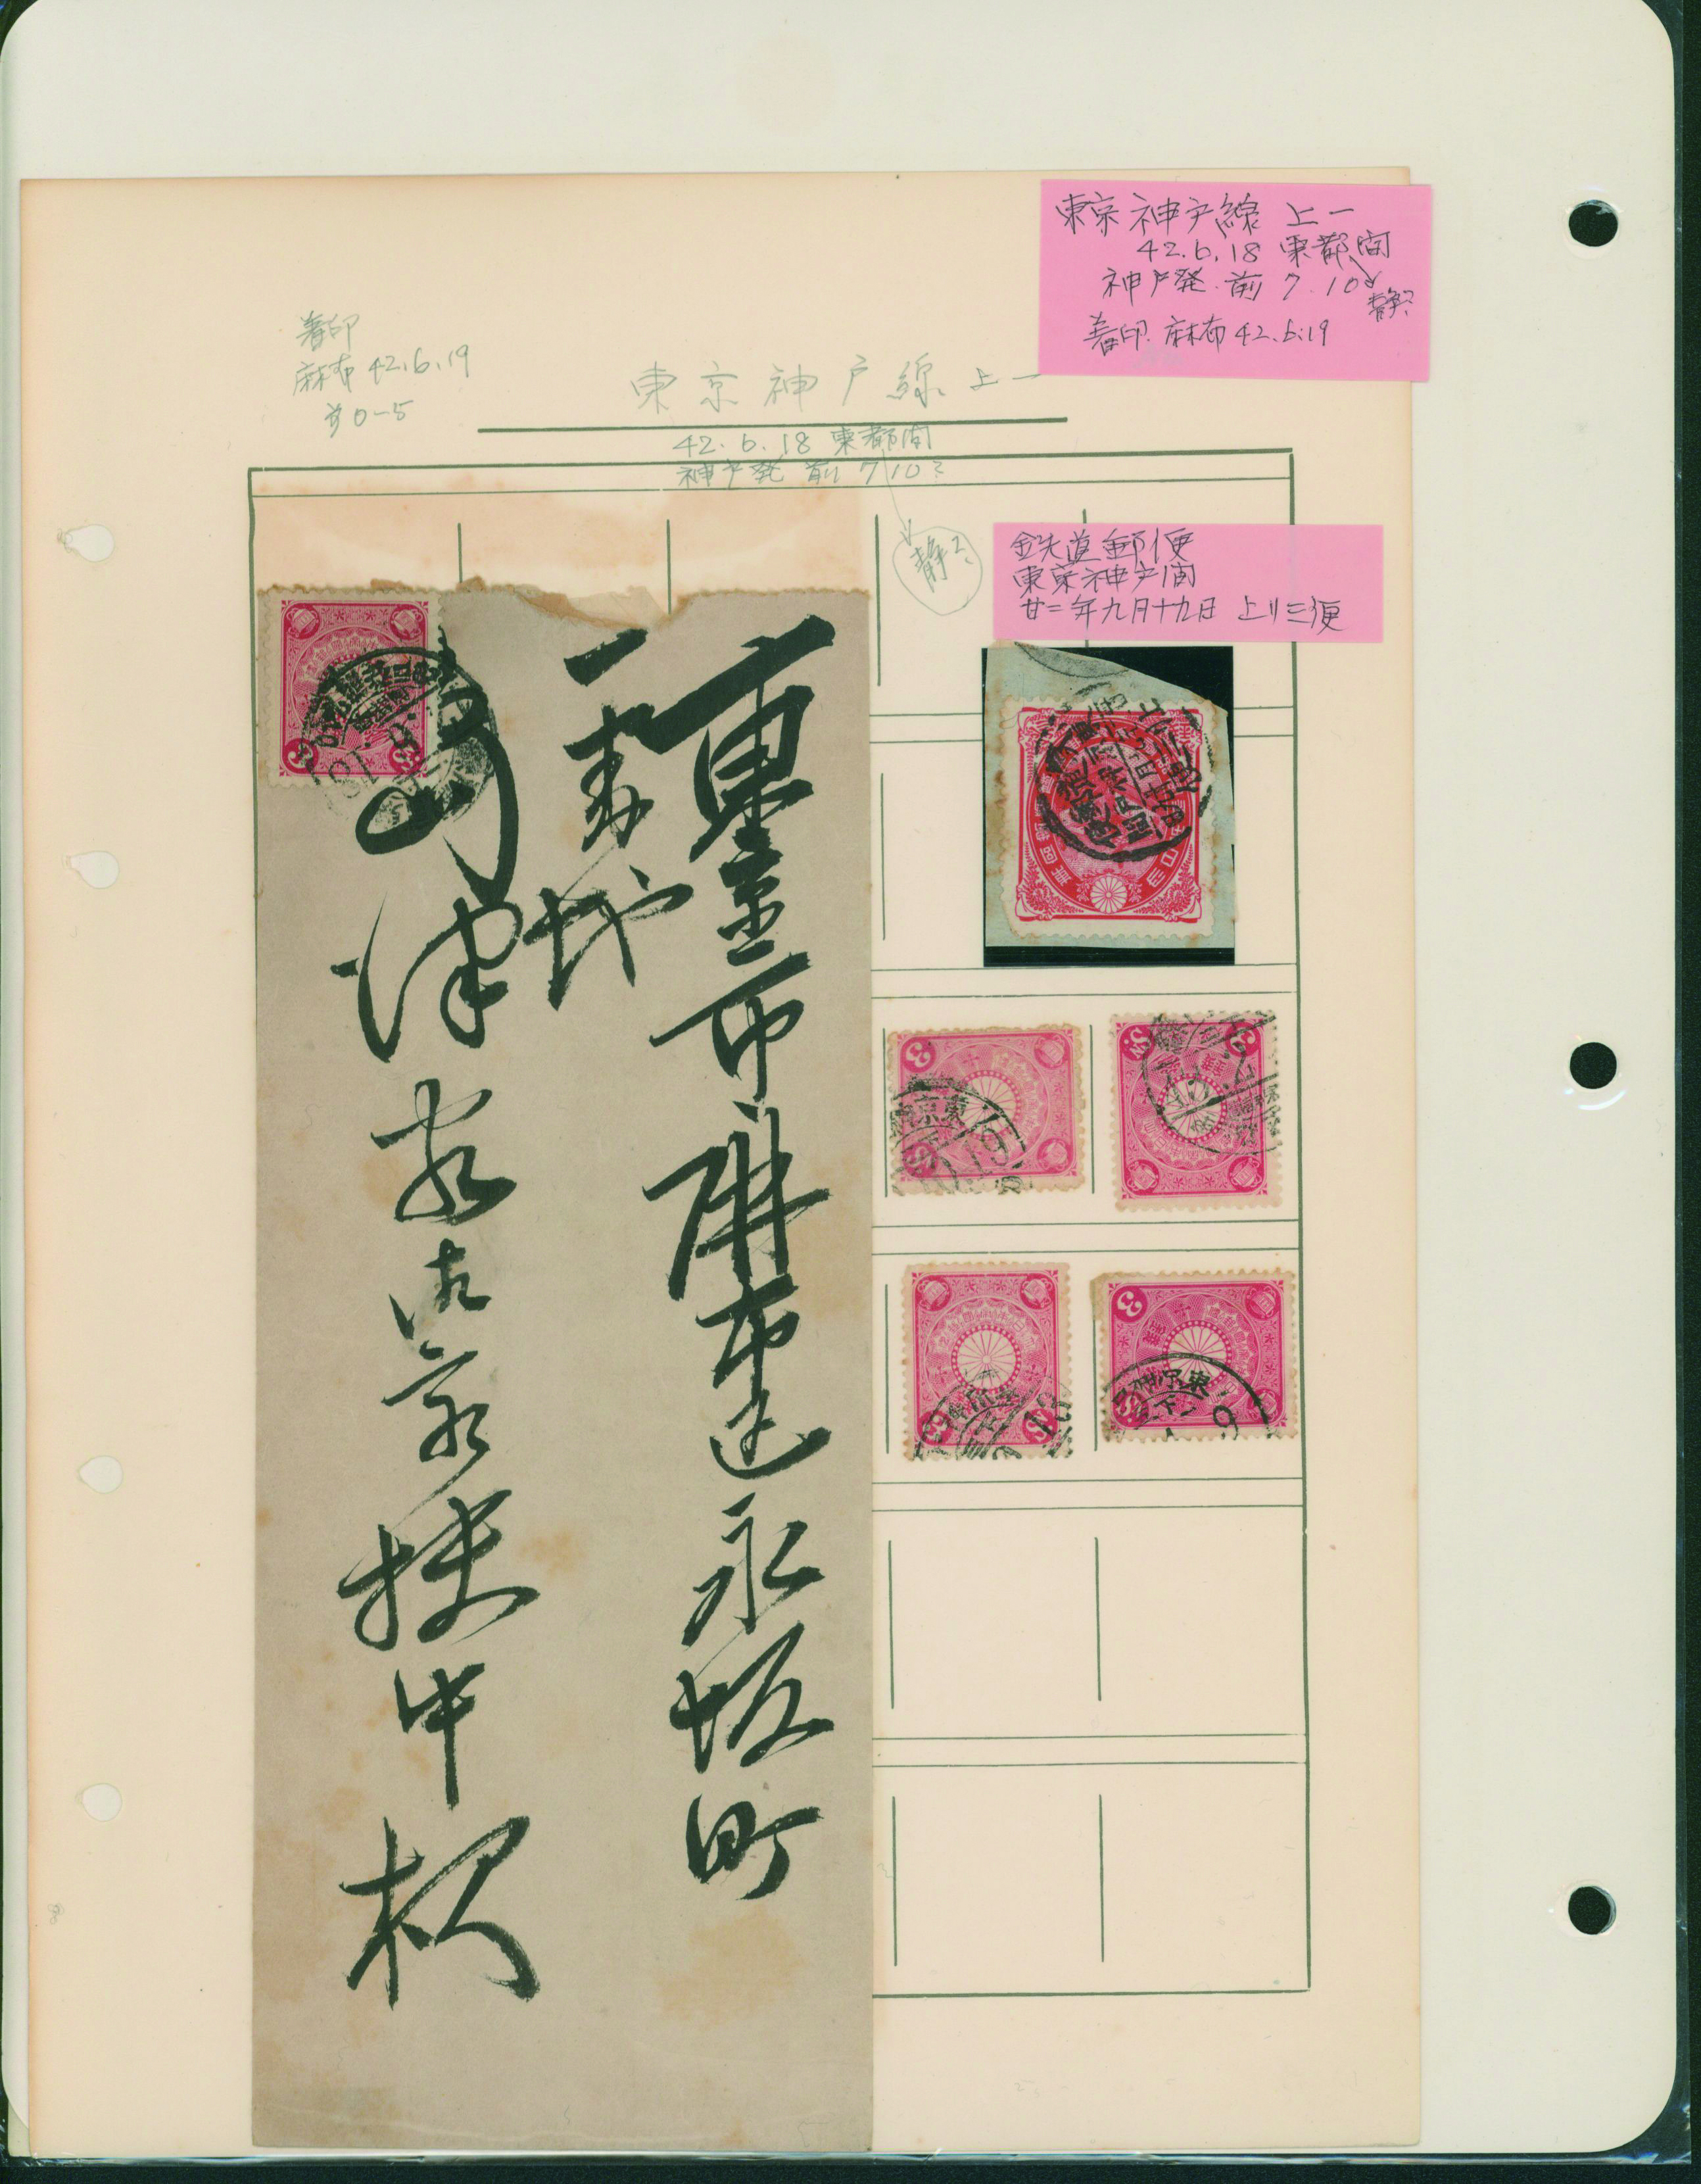 東京神戸線 上一
42.6.18 東都間
神戸発 前 7.10
静?
着印 麻布 42.6.19
着印
麻布 42.6.19
前0-5
東京神戸線 上一
42.6.18 東都間
神戸発 前 7 10?
静?
鉄道郵便
東京神戸間
廿二年九月十九日 上り三便
東京市麻布区永坂町
一番地
島津家御家扶中様